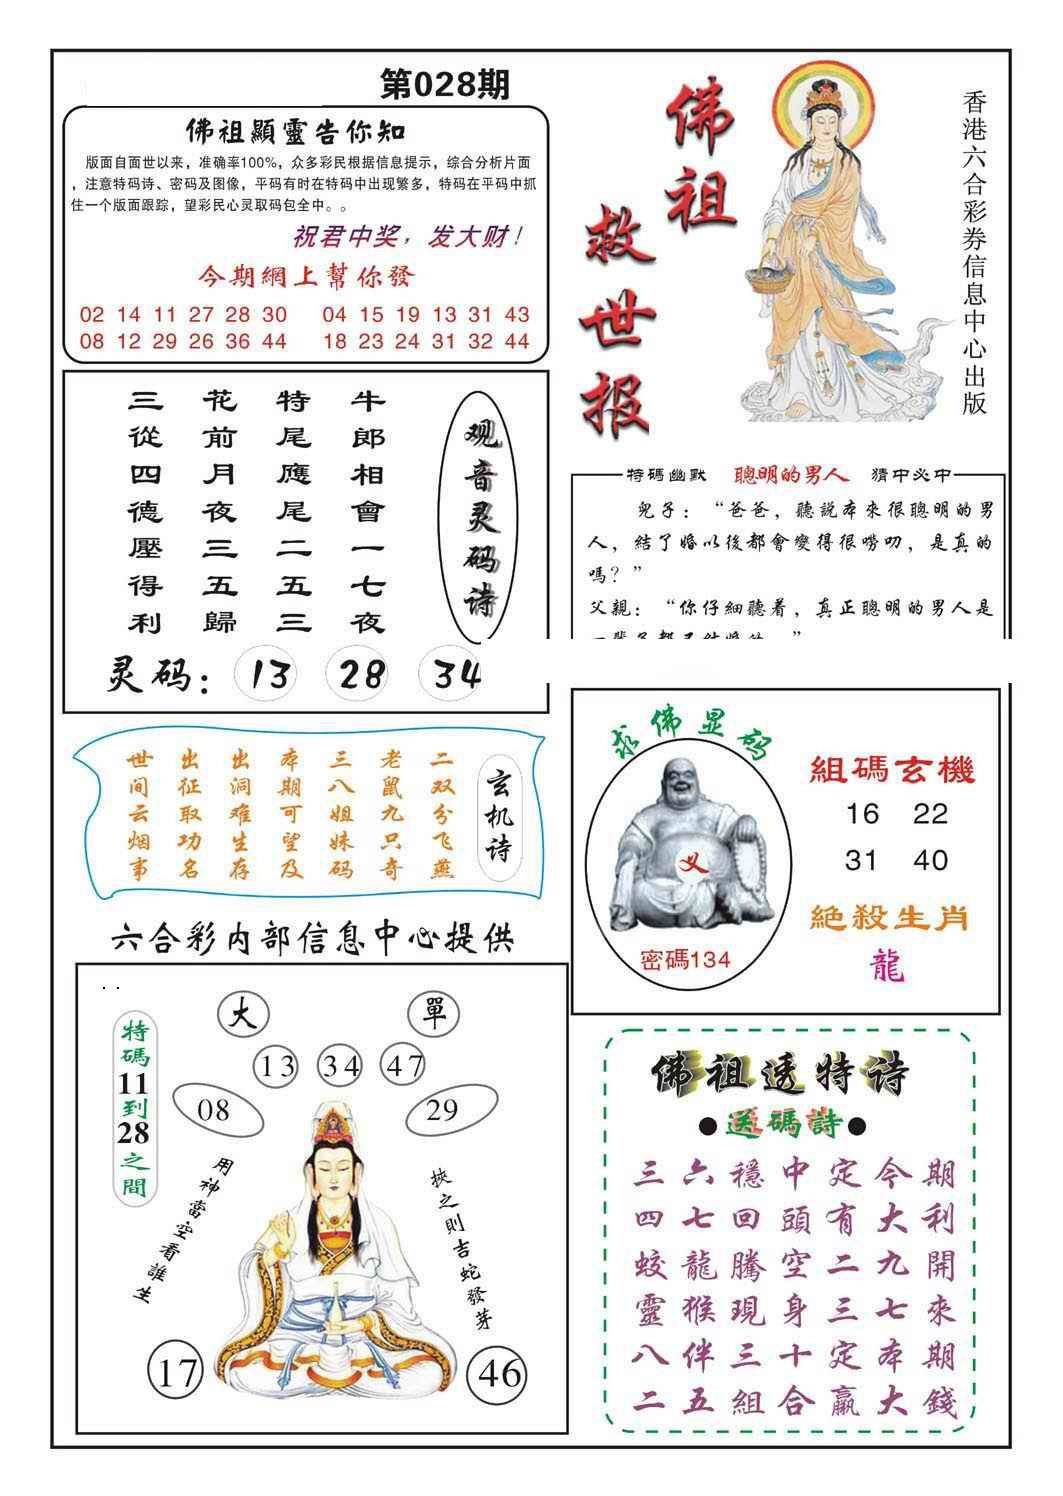 第028期
佛祖顯靈告你知
版面自面世以来，准确率100%，众多彩民根据信息提示，综合分析片面
，注意特码诗、密码及图像，平码有时在特码中出现繁多，特码在平码中抓
住一个版面跟踪，望彩民心灵取码包全中。。
祝君中奖，发大财！
今期網上幫你發
02 14 11 27 28 30 04 15 19 13 31 43
08 12 29 26 36 44 18 23 24 31 32 44
佛祖
救世报
香港六合彩券信息中心出版
观音灵码诗
牛郎相會一七夜
特尾應尾二五三
花前月夜三五歸
三從四德壓得利
灵码：13 28 34
特碼幽默 聰明的男人 猜中必中
兒子：“爸爸，聽説本來很聰明的男
人，結了婚以後都會變得很嘮叨，是真的
嗎？”
父親：“你仔細聽着，真正聰明的男人是
玄机诗
二双分飞燕
老鼠九只奇
三八姐妹码
本期可望及
出洞难生存
出征取功名
世间云烟事
求佛显码
义
密碼134
組碼玄機
16 22
31 40
絕殺生肖
龍
六合彩内部信息中心提供
特碼11到28之間
大 單
13 34 47
08 29
用神當空看誰生
挾之則吉蛇發芽
17 46
佛祖透特诗
●送碼詩●
三六穩中定今期
四七回頭有大利
蛟龍騰空二九開
靈猴現身三七來
八伴三十定本期
二五組合贏大錢